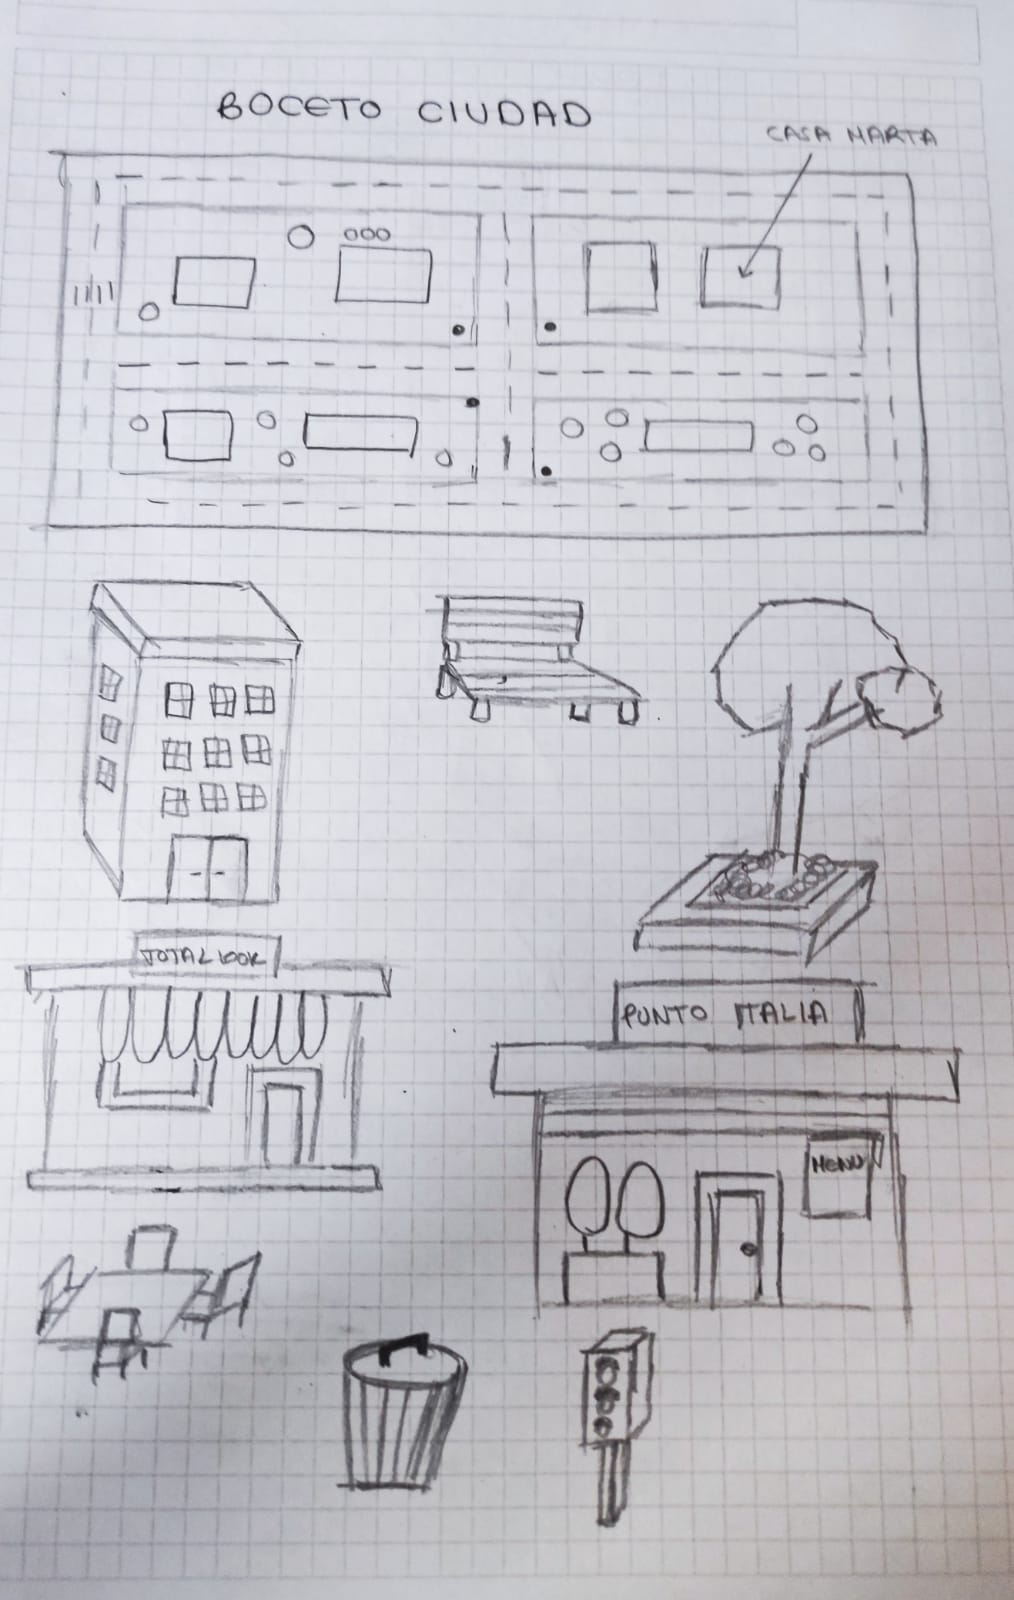 BOCETO CIUDAD
CASA MARTA
TOTAL LOOK
PUNTO ITALIA
MENU